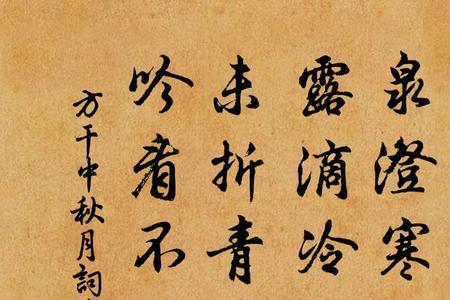 泉澄寒
露滴冷
未折青
吟看不
方干中秋月詞